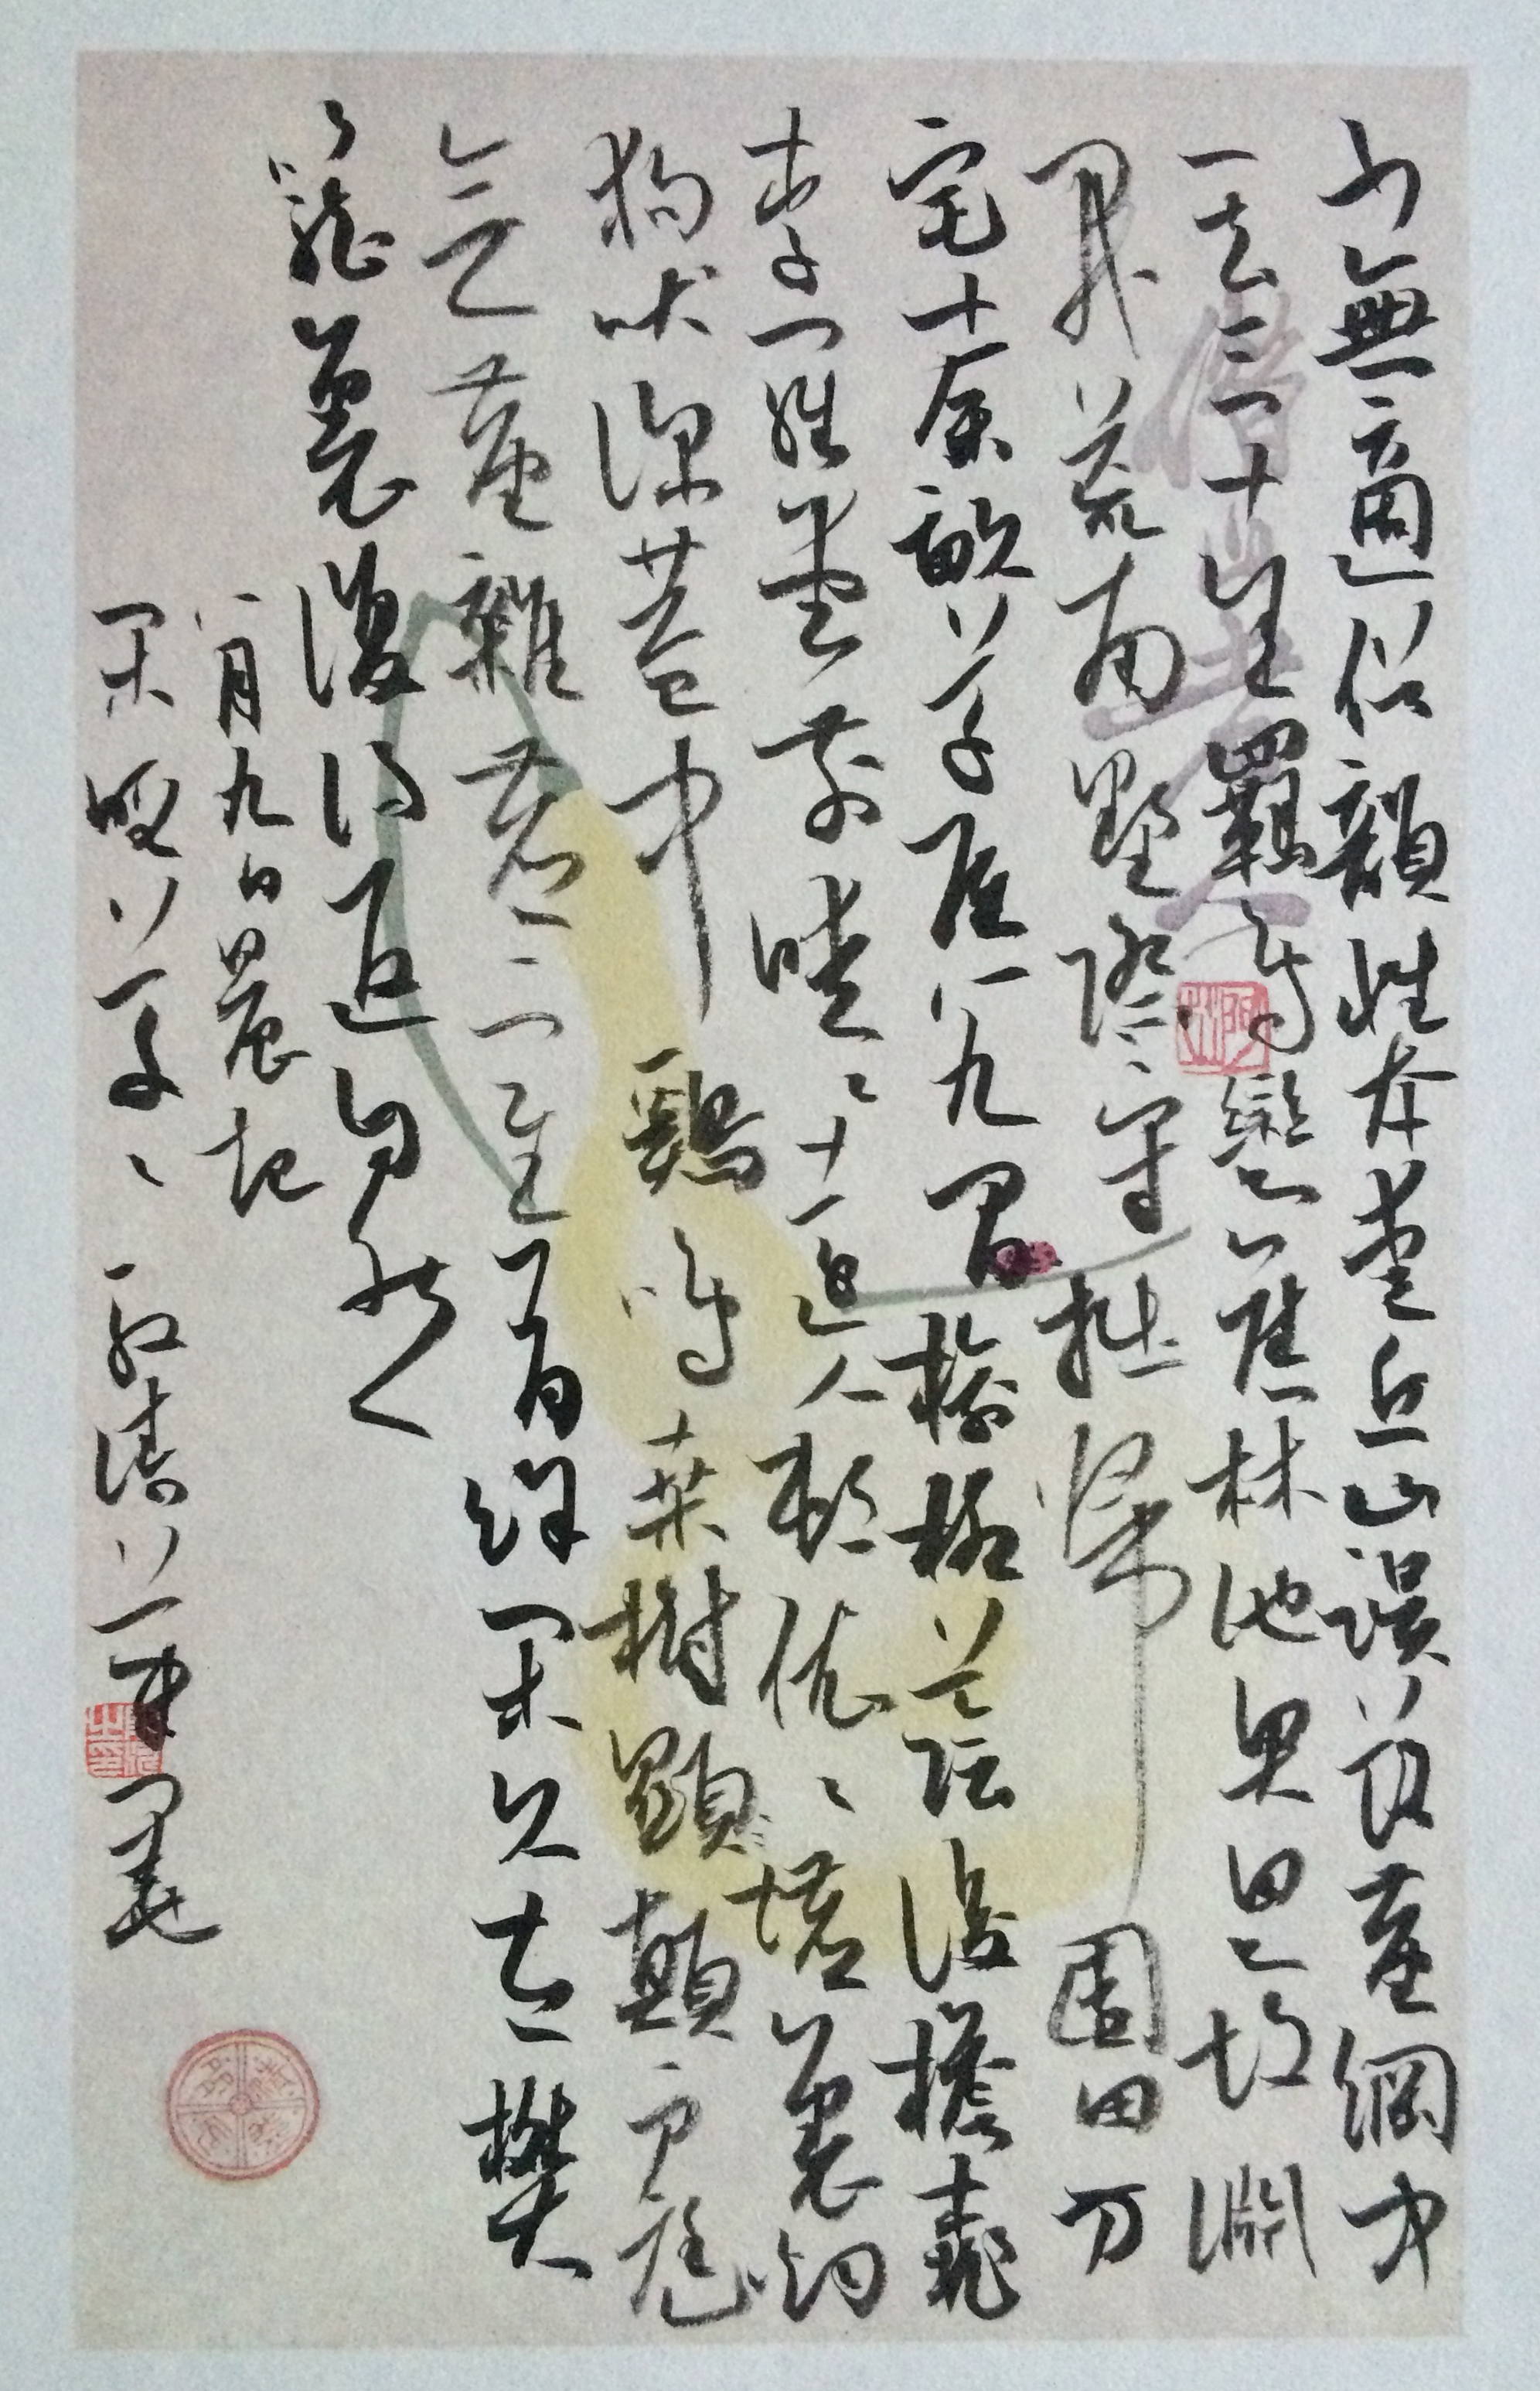 少無適俗韻性本愛丘山誤落塵網中
一去三十年羈鳥戀舊林池魚思故淵
開荒南野際守拙歸園田方
宅十余畝草屋八九間榆柳蔭後檐桃
李羅堂前曖々遠人村依々墟裏烟
狗吠深巷中鷄鳴桑樹顯顛户庭
無塵雜虚室有餘閑久在樊
籠裏復得返自然
八月九日晨起